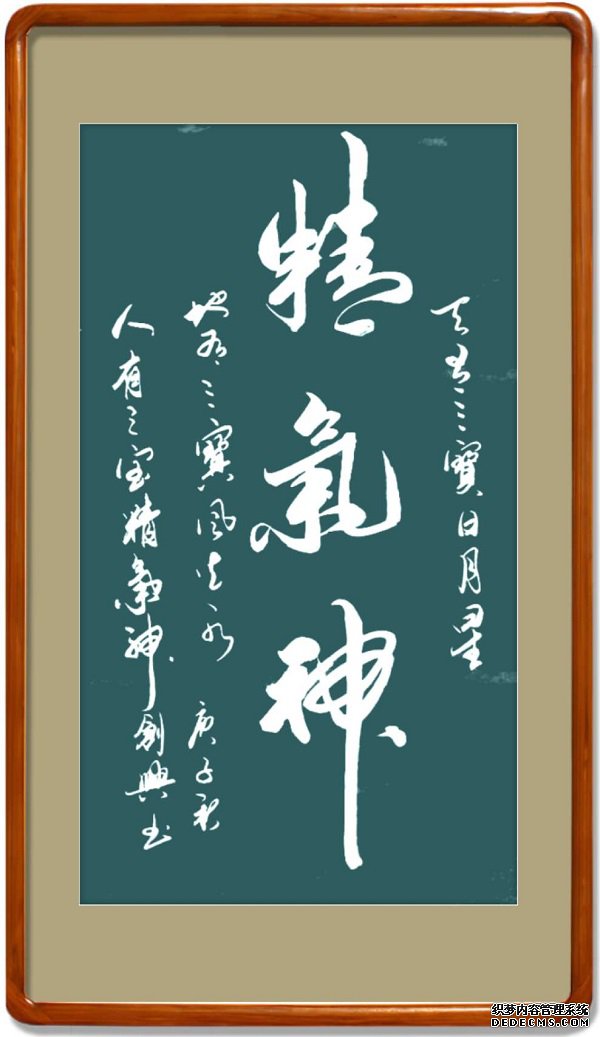 天有三寶日月星
精氣神
地有三寶风火水
庚子秋
人有三宝精氣神
創興书
织梦内容管理系统
DEDECMS.COM